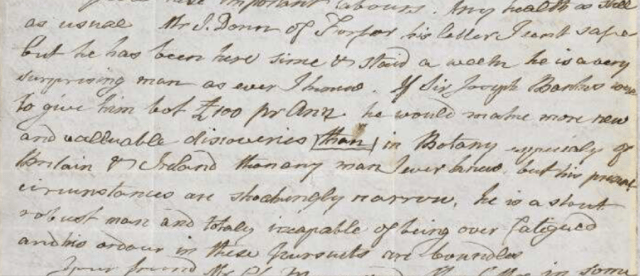 have important labours. Any health as still
as usual Mr. J. Donn of Forfar his letter I sent safe
but he has been here since & staid a week he is a very
surprising man as ever I knows. If Sir Joseph Banks were
to give him bot £100 pr Ann he would make more new
and valluable discoveries than in Botany especialy of
Britain & Ireland than any man I ever knew, but his present
circumstances are shockingly narrow, he is a stout
robust man and totaly incapable of being over fatigued
and his ardour in these pursuets are boundles
Your friend Mr in some